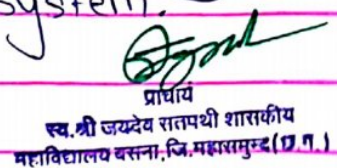 system.
प्राचार्य
स्व. श्री जयदेव सतपथी शासकीय
महाविद्यालय बसना, जि. महासमुन्द (छ.ग.)